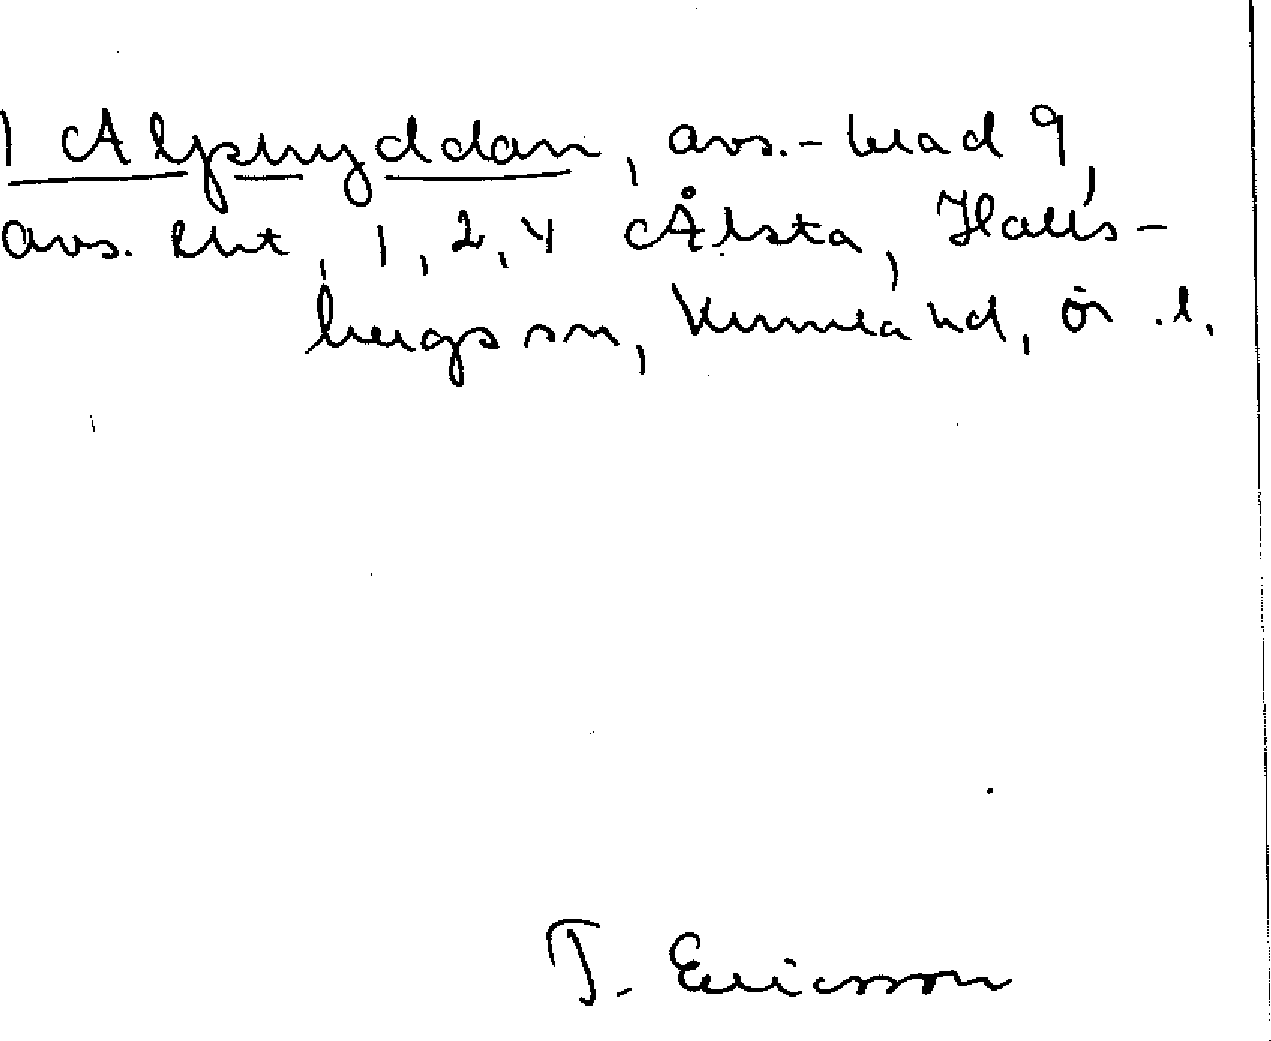 1 Alphyddan, avs.-blad 9,
avs. till, 1, 2, 4 Ålsta, Halls-
bergs sn, Kumla hd, ör. l.
T. Ericsson